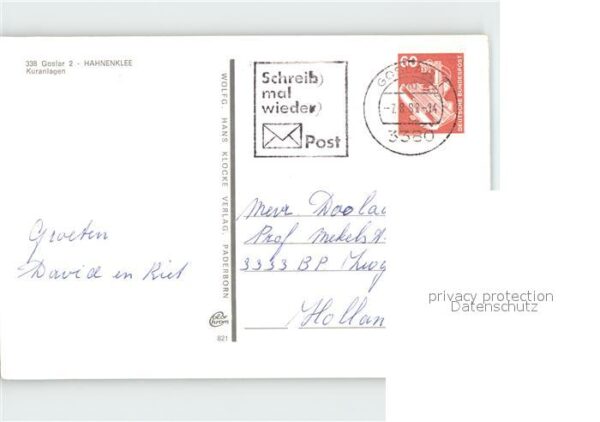 338 Goslar 2 - HAHNENKLEE
Kuranlagen
WOLFG. HANS KLOCKE VERLAG, PADERBORN
821
Schreib
mal
wieder
Post
60
DEUTSCHE BUNDESPOST
3380
Groeten
David en Riet
Mevr Doola
Prof Mekelst
3333 BP
Hollan
privacy protection
Datenschutz